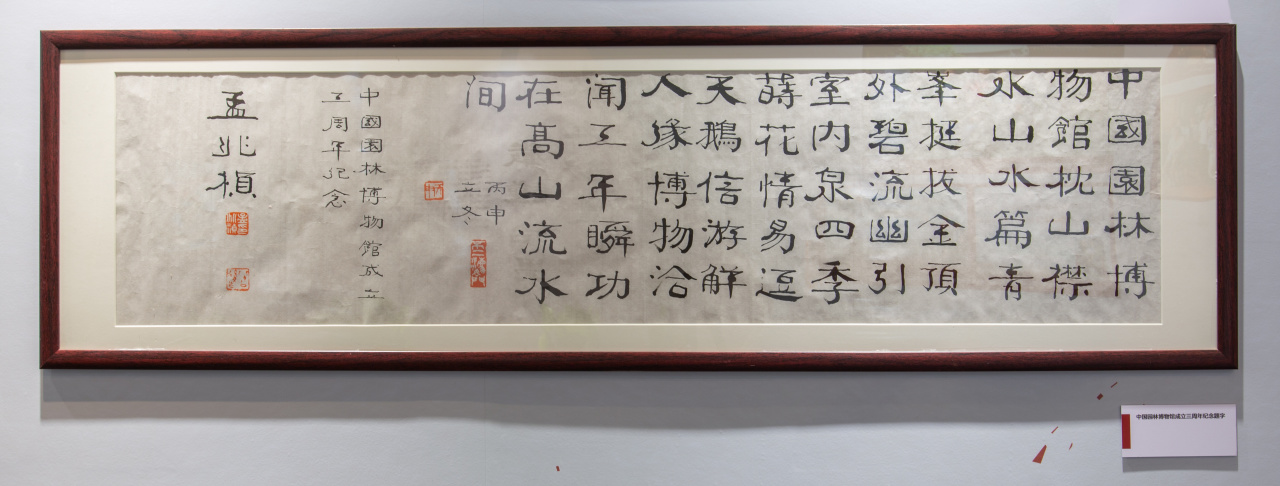 中國園林博
物館枕山襟
水山水篇青
峯挺拔金頂
外碧流幽引
室内泉四季
蒔花情易逗
天鵝信游解
人緣博物洽
闻五年瞬功
在高山流水
间
丙申
立冬
中國園林博物館成立
五周年纪念
孟兆禎
中国园林博物馆成立三周年纪念题字